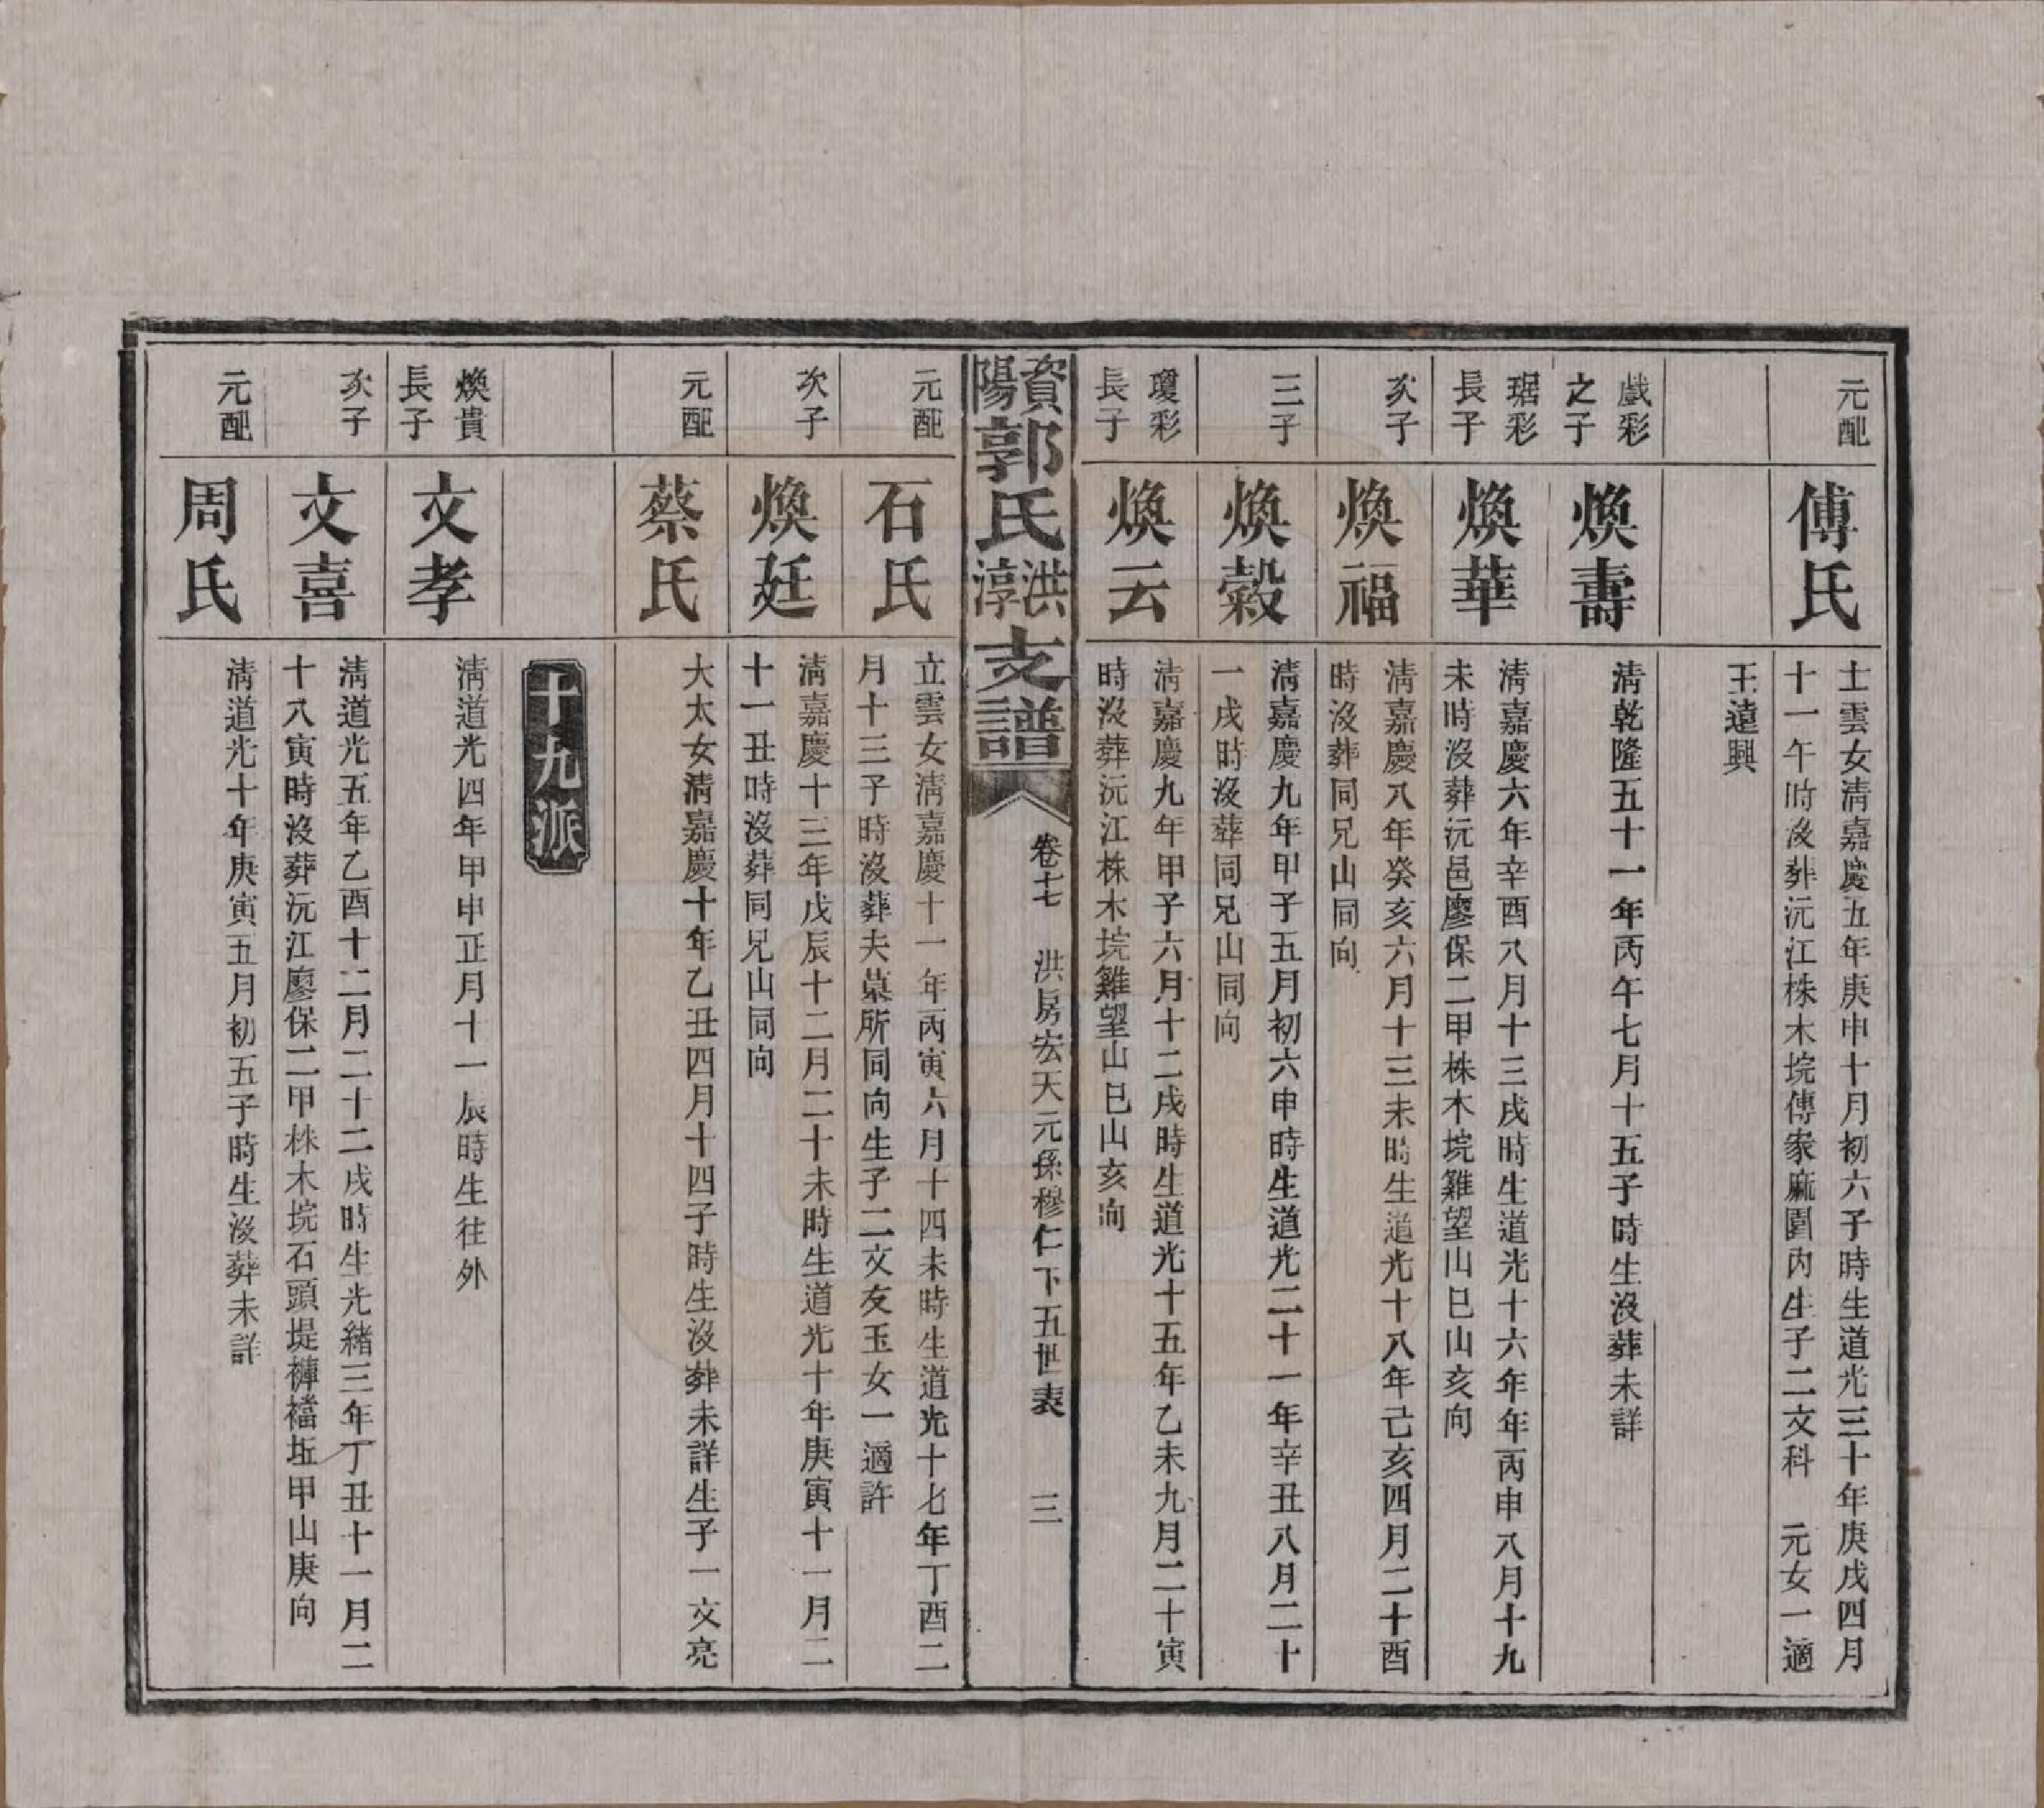 元配
傅氏
士雲女清嘉慶五年庚申十月初六子時生道光三十年庚戌四月
十一午時沒葬沅江株木垸傅家麻園內生子二文科　元女一適
王遠興
戲彩
之子
煥壽
清乾隆五十一年丙午七月十五子時生沒葬未詳
琚彩
長子
煥華
清嘉慶六年辛酉八月十三戌時生道光十六年年丙申八月十九
未時沒葬沅邑廖保二甲株木垸雞望山巳山亥向
次子
煥福
清嘉慶八年癸亥六月十三未時生道光十八年己亥四月二十酉
時沒葬同兄山同向
三子
煥穀
清嘉慶九年甲子五月初六申時生道光二十一年辛丑八月二十
一戌時沒葬同兄山同向
瓊彩
長子
煥云
清嘉慶九年甲子六月十二戌時生道光十五年乙未九月二十寅
時沒葬沅江株木垸雞望山巳山亥向
資陽郭氏洪淳支譜
卷十七　洪房宏天元係穆仁下五世表　三
元配
石氏
立雲女清嘉慶十一年丙寅六月十四未時生道光十七年丁酉二
月十三子時沒葬夫墓所同向生子二文友玉女一適許
次子
煥廷
清嘉慶十三年戊辰十二月二十未時生道光十年庚寅十一月二
十一丑時沒葬同兄山同向
元配
蔡氏
大太女清嘉慶十年乙丑四月十四子時生沒葬未詳生子一文亮
十九派
煥貴
長子
文孝
清道光四年甲申正月十一辰時生往外
次子
文喜
清道光五年乙酉十二月二十二戌時生光緒三年丁丑十一月二
十八寅時沒葬沅江廖保二甲株木垸石頭堤褲襠坵甲山庚向
元配
周氏
清道光十年庚寅五月初五子時生沒葬未詳